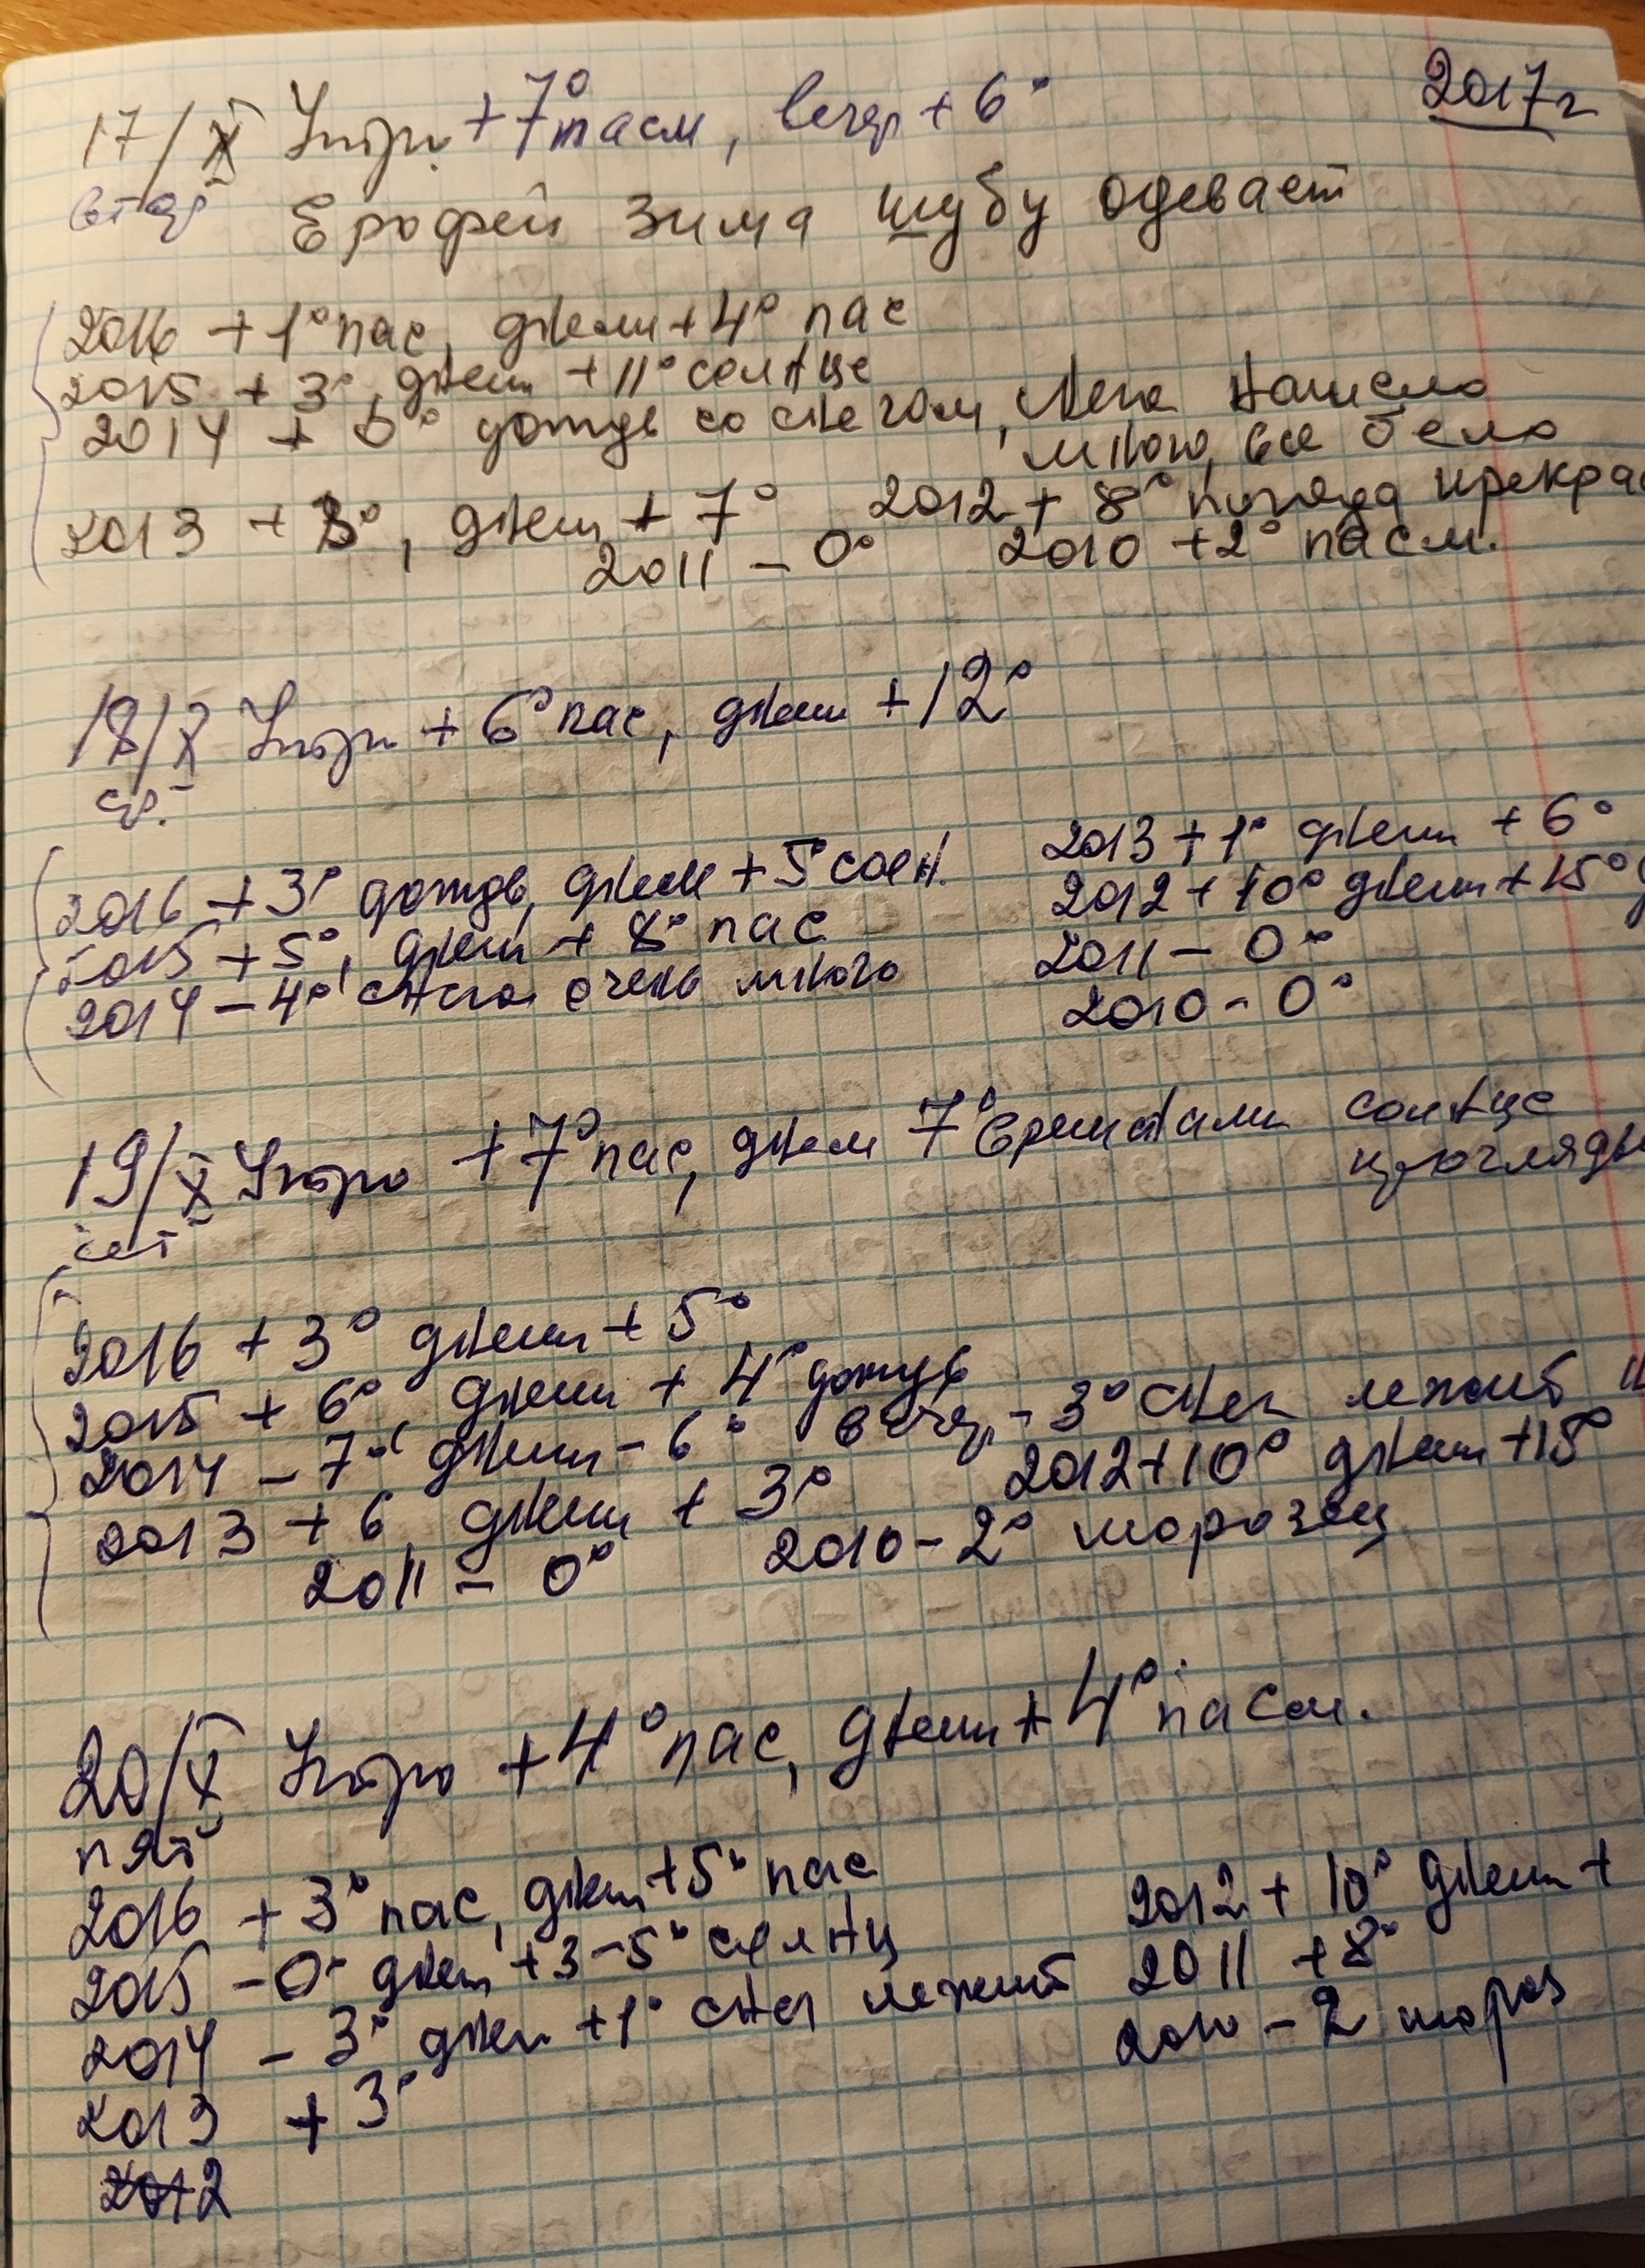 2017г
17/X Утро +7° пасм, вечер +6°
втор
Ерофей зима шубу одевает
2016 +1° пас, днем +4° пас
2015 +3°, днем +11° солнце
2014 + 0° дождь со снегом, снега нанесло
много, все бело
2013 +3°, днем +7° 2012 + 8° погода прекрас
2011 – 0° 2010 +2° пасм.
18/X Утро +6° пас, днем +12°
ср.
2016 +3° дождь, днем +5° солн.
2015 +5°, днем + 8° пас
2014 – 4° снега очень много
2013 +1° днем +6°
2012 +10° днем +15°
2011 – 0°
2010 – 0°
19/X Утро +7° пас, днем 7° временами солнце
чет проглядыв
2016 +3° днем +5°
2015 + 6°, днем + 4° дождь
2014 – 7°, днем – 6° вечер – 3° снег лежит
2013 + 6, днем + 3° 2012 +10° днем +18°
2011 – 0° 2010 – 2° морозец
20/X Утро +4° пас, днем +4° пасм.
пят
2016 +3° пас, днем +5° пас
2015 – 0° днем +3 – 5° солнц
2014 – 3° днем +1° снег лежит
2013 +3°
2012
2012 + 10° днем +
2011 +8°
2010 – 2 мороз